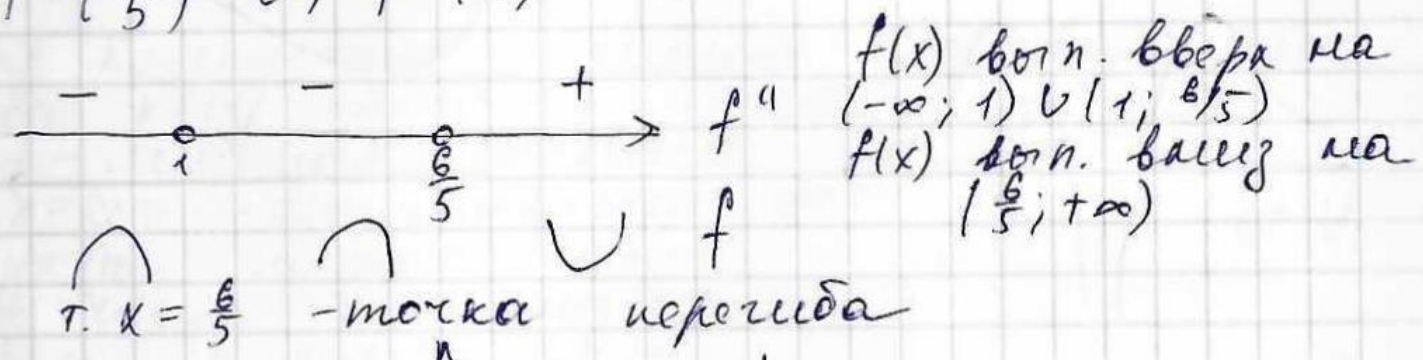 − − + f" f(x) вып. вверх на
(-∞; 1) ∪ (1; 6/5)
1 6/5 f(x) вып. вниз на
(6/5; +∞)
f
т. x = 6/5 - точка перегиба